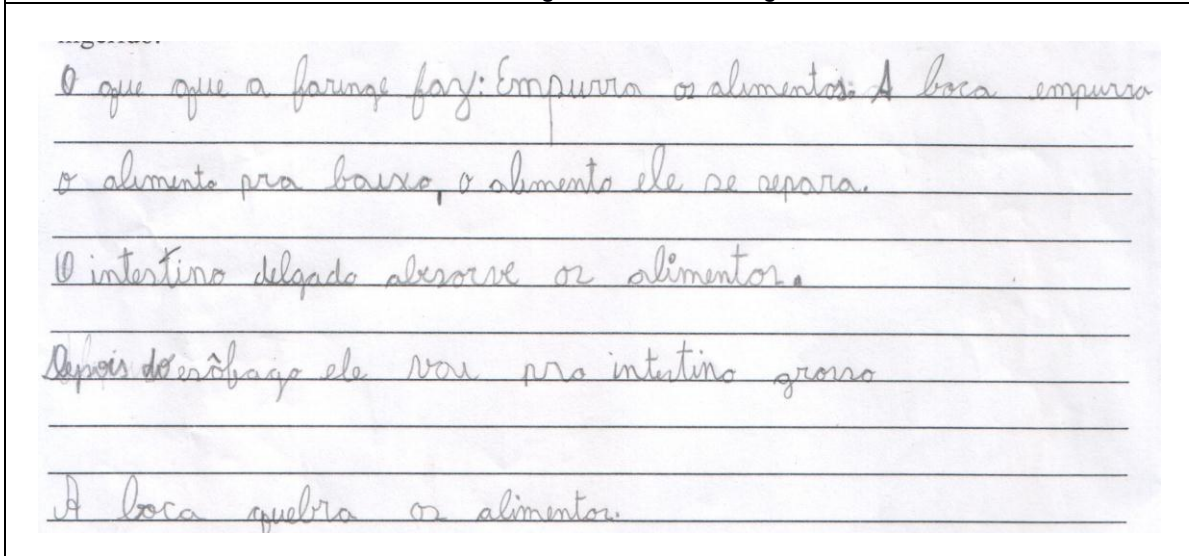 O que que a faringe faz: Empurra os alimentos. A boca empurra
o alimento pra baixo, o alimento ele se separa.
O intestino delgado absorve os alimentos.
Depois do esôfago ele vai pro intestino grosso
A boca quebra os alimentos.